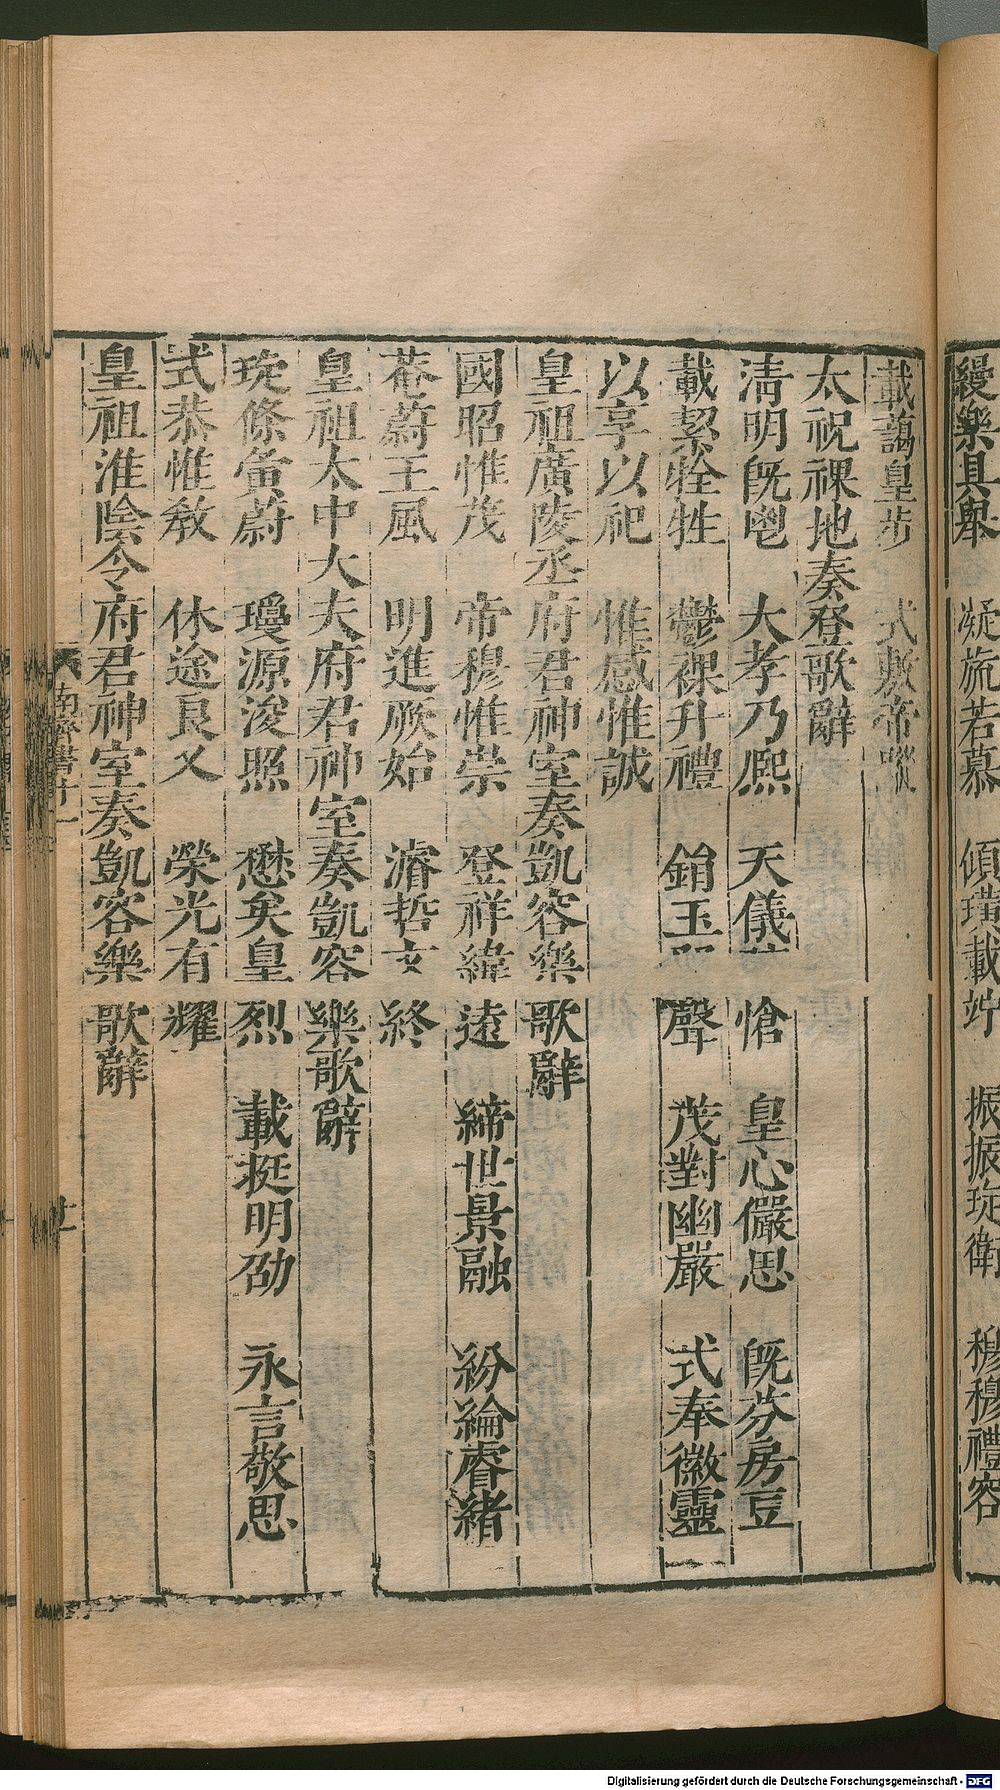 縵樂具舉　凝旒若慕　傾璜載竚　振振琁衛　穆穆禮容
載藹皇步　式敷帝蹤
太祝祼地奏登歌辭
淸明旣鬯　大孝乃熈　天儀　愴　皇心儼思　旣芬房豆
載絜牷牲　鬱祼升禮　鋿玉　聲　茂對幽嚴　式奉徽靈
以享以祀　惟感惟誠
皇祖廣陵丞府君神室奏凱容樂歌辭
國昭惟茂　帝穆惟崇　登祥緯遠　締世景融　紛綸睿緒
菴蔚王風　明進厥始　濬哲文終
皇祖太中大夫府君神室奏凱容樂歌辭
琁條夤蔚　瓊源浚照　懋矣皇烈　載挺明劭　永言敬思
式恭惟敎　休途良乂　榮光有耀
皇祖淮陰令府君神室奏凱容樂歌辭
南齊書十一　廿
Digitalisierung gefördert durch die Deutsche Forschungsgemeinschaft - DFG